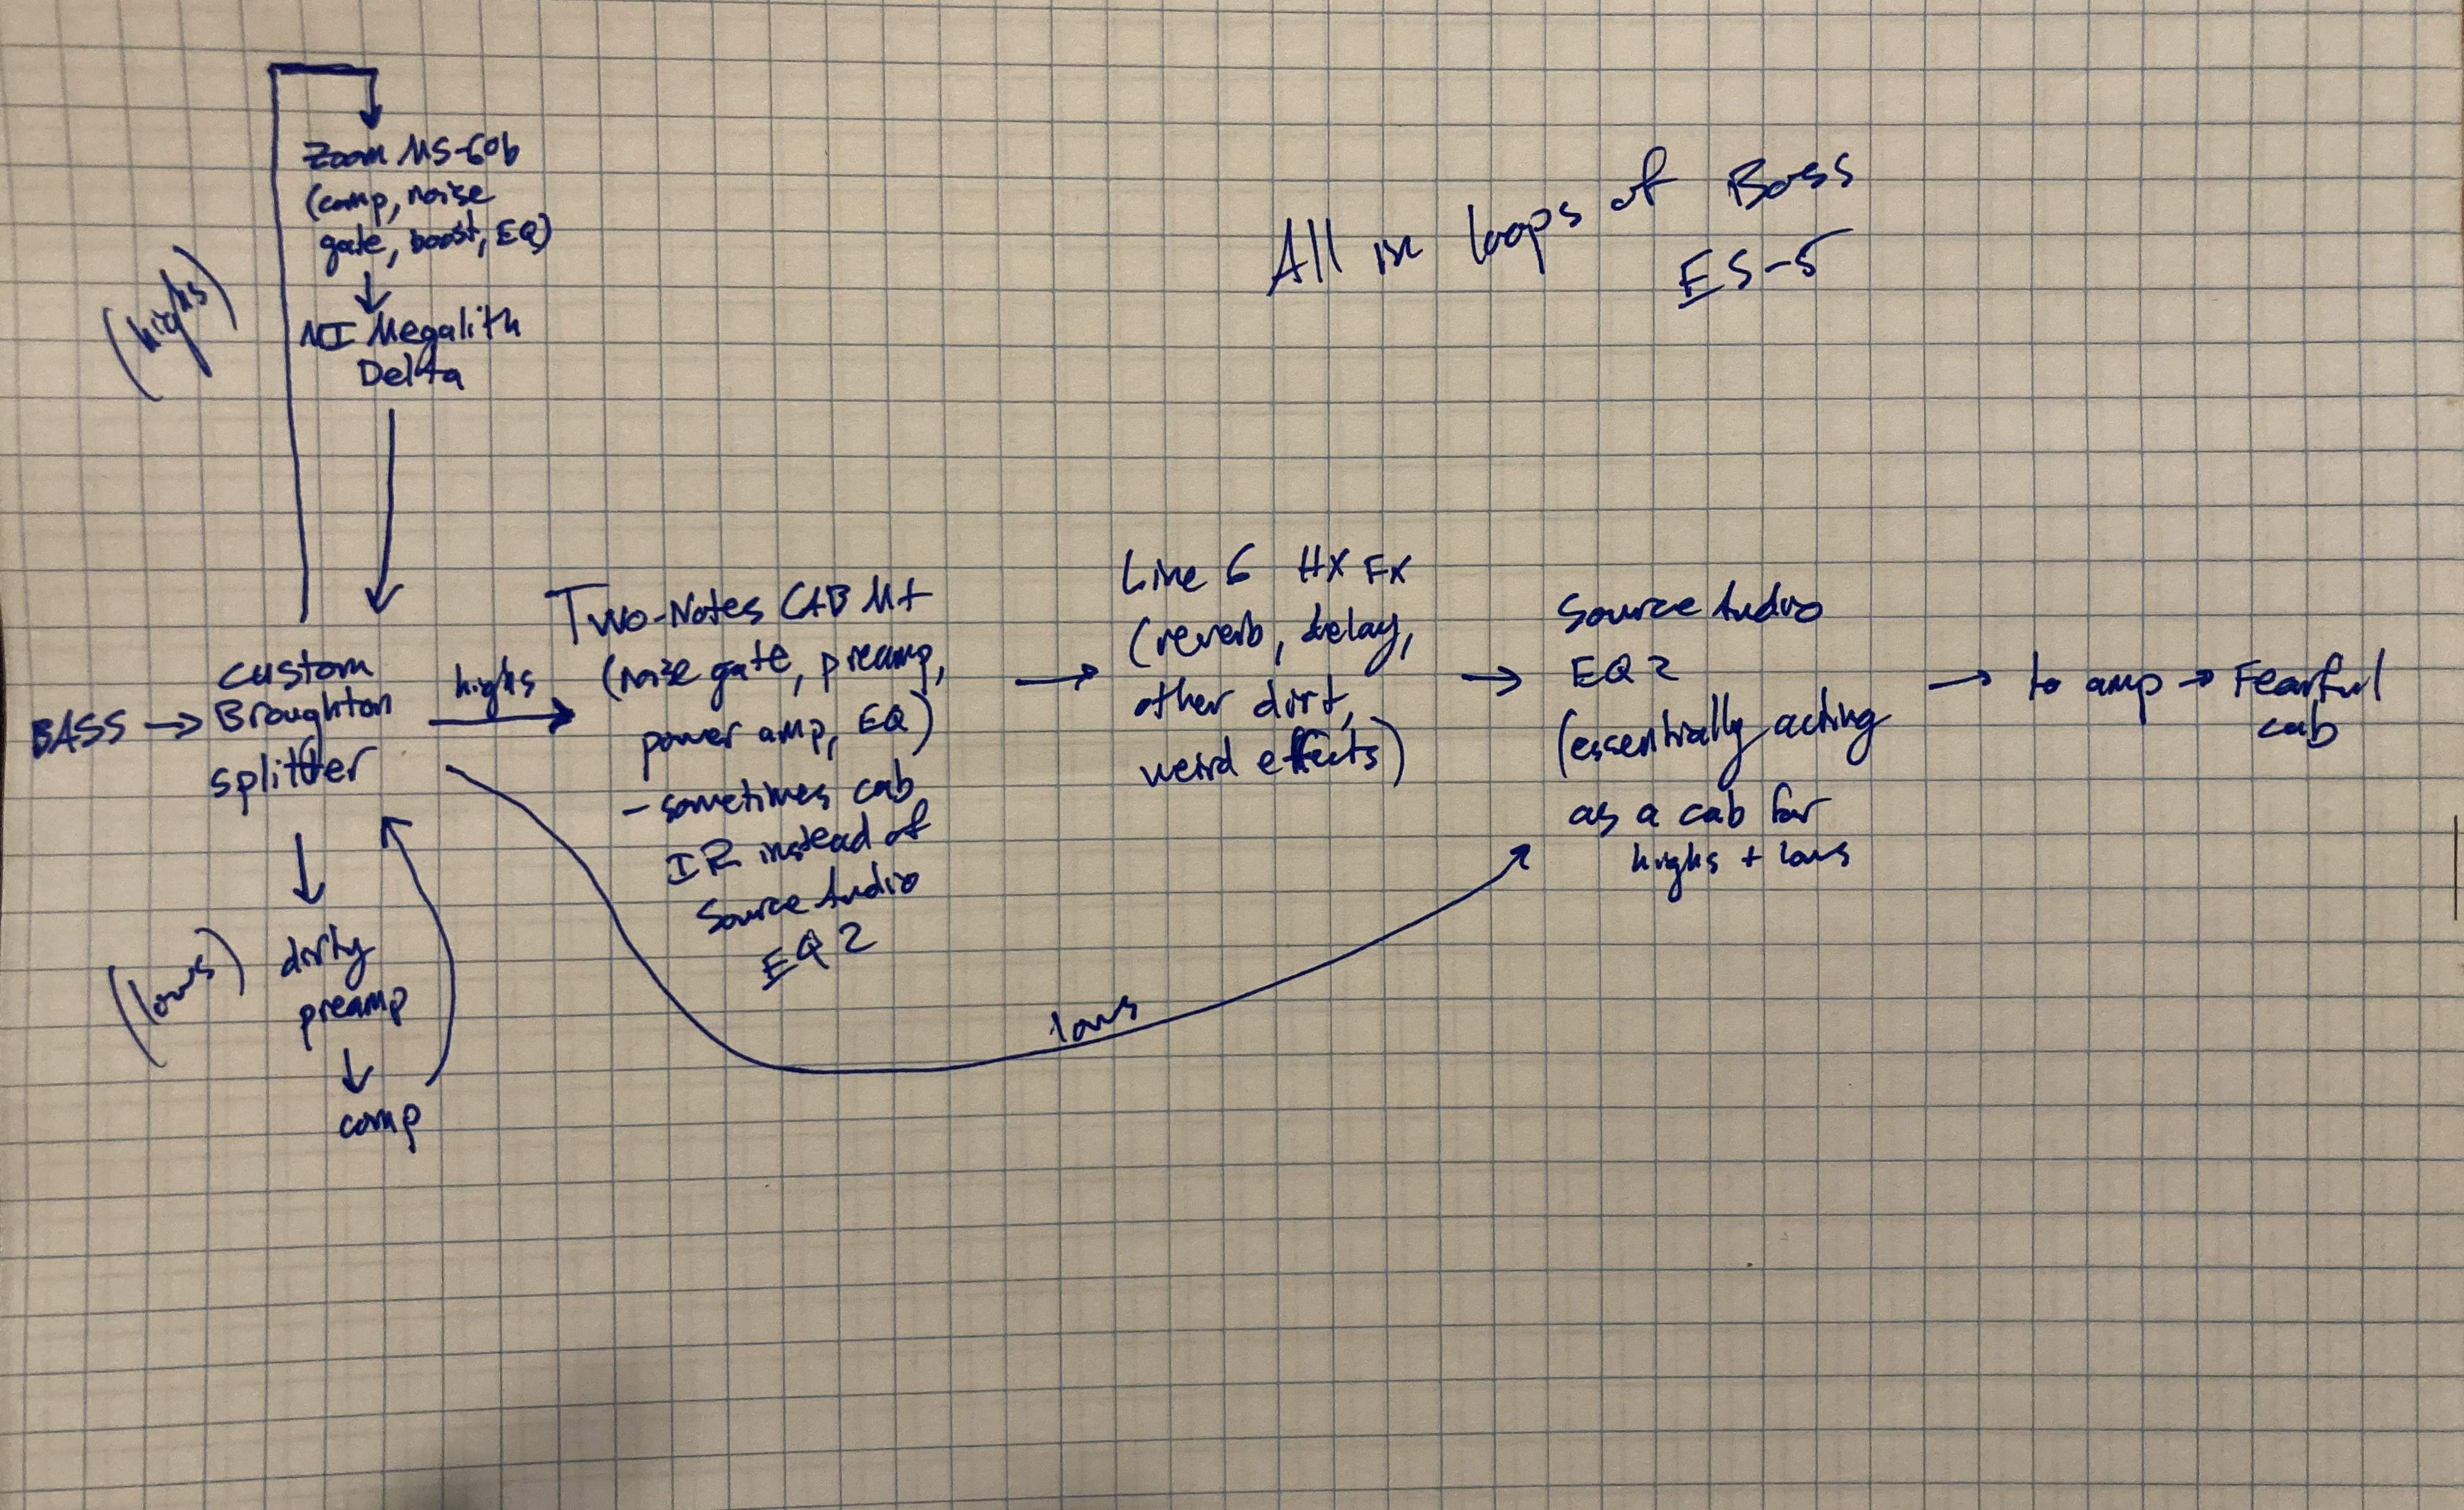 Zoom MS-60b
(comp, noise
gate, boost, EQ)
NI Megalith
Delta
(highs)
All in loops of Boss
ES-5
BASS → custom
Broughton
splitter
highs
Two-Notes CAB M+
(noise gate, preamp,
power amp, EQ)
- sometimes cab
IR instead of
Source Audio
EQ 2
Line 6 HX FX
(reverb, delay,
other dirt,
weird effects)
Source Audio
EQ 2
(essentially acting
as a cab for
highs + lows
→ to amp → Fearful
cab
(lows)
dirty
preamp
comp
lows